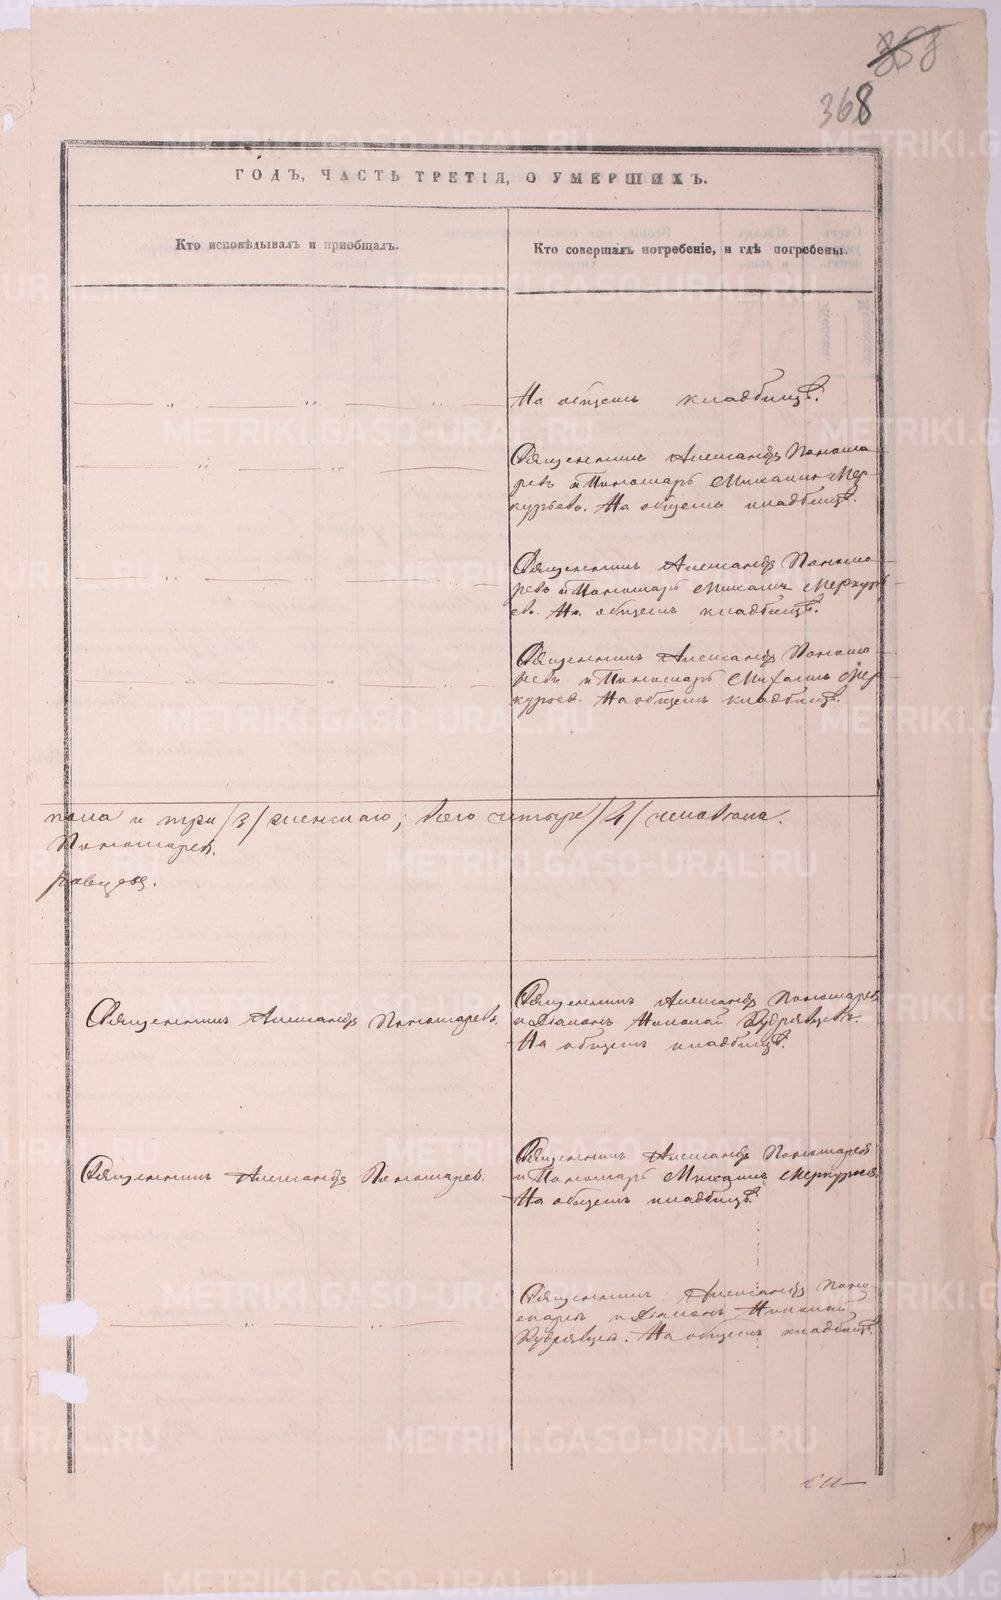 358
368
ГОДЪ, ЧАСТЬ ТРЕТІЯ, О УМЕРШИХЪ.
Кто исповѣдывалъ и пріобщалъ.
Кто совершалъ погребеніе, и гдѣ погребены.
На общемъ кладбищѣ.
Священникъ Александръ Понома
ревъ и Пономарь Михаилъ Мер-
курьевъ. На общемъ кладбищѣ.
Священникъ Александръ Понома-
ревъ и Пономарь Михаилъ Меркурь
евъ. На общемъ кладбищѣ.
Священникъ Александръ Понома
ревъ и Пономарь Михаилъ Мер
курьевъ. На общемъ кладбищѣ.
пола и три /3/ женскаго; всего четыре /4/ человека.
Пономаревъ.
рявцевъ.
Священникъ Александръ Пономаревъ.
Священникъ Александръ Пономаревъ
и Діаконъ Николай Кудрявцевъ.
На общемъ кладбищѣ.
Священникъ Александръ Пономаревъ.
Священникъ Александръ Пономаревъ
и Пономарь Михаилъ Меркурьевъ.
На общемъ кладбищѣ.
Священникъ Александръ Поно
маревъ и Діаконъ Николай
Кудрявцевъ. На общемъ кладбищѣ.
METRIKI.GASO-URAL.RU